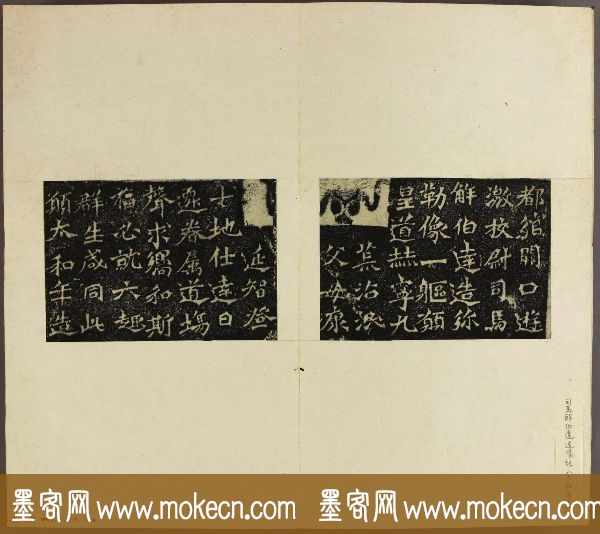 都綰闕口遊
激校尉司馬
解伯達造弥
勒像一軀願
皇道赫寧九
荒沾泯
父母康
延智登
十地仕達日
遷眷属道場
聲求嚮和斯
福必就六趣
群生咸同此
願太和年造
司馬解伯達造像記
墨客网 www.mokecn.com 墨客网 www.mokecn.com